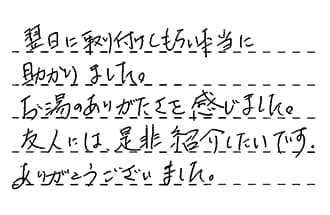 翌日に取り付けしもらい本当に
助かりました。
お湯のありがたさを感じました。
友人には、是非紹介したいです.
ありがとうございました。